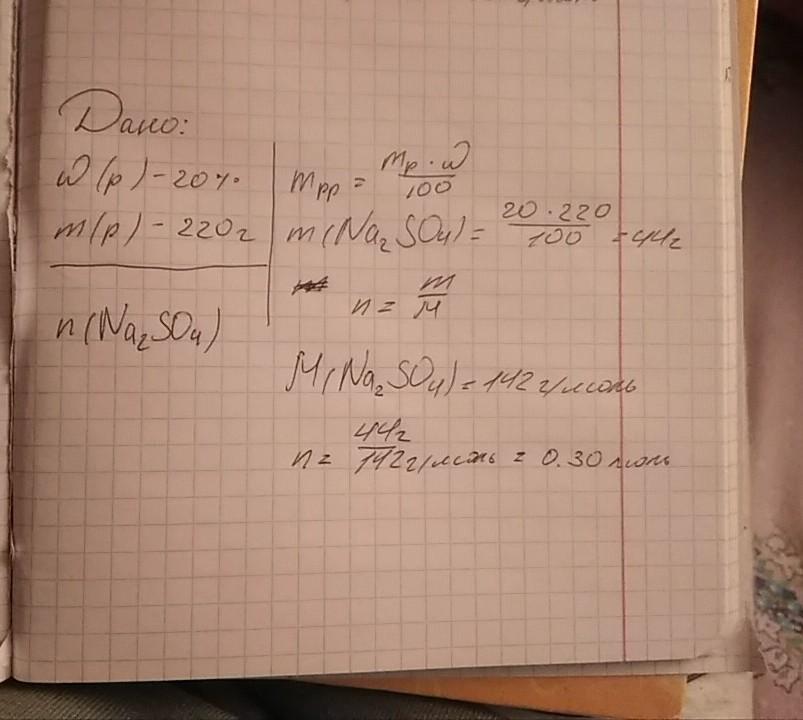 Дано:
ω(р) - 20%
m(р) - 220г
n(Na₂SO₄)
mрр = mр · ω / 100
m(Na₂SO₄) = 20 · 220 / 100 = 44г
n = m / M
M(Na₂SO₄) = 142 г/моль
n = 44г / 142 г/моль = 0.30 моль